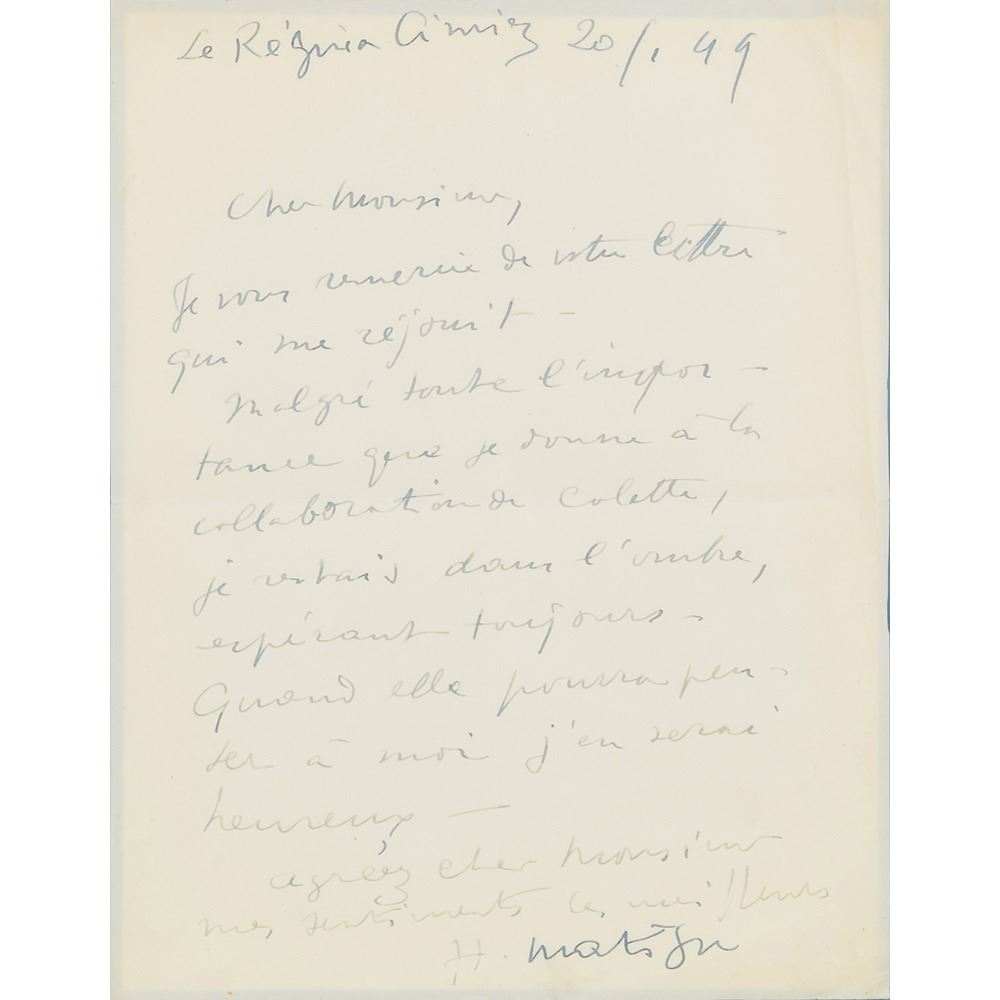 Le Régina Cimiez 20/1 49
Cher Monsieur,
Je vous remercie de votre lettre
qui me réjouit —
Malgré toute l'impor-
tance que je donne à la
collaboration de Colette,
je restais dans l'ombre,
espérant toujours -
Quand elle pourra pen-
ser à moi j'en serai
heureux —
agréez cher Monsieur
mes sentiments les meilleurs
H. Matisse